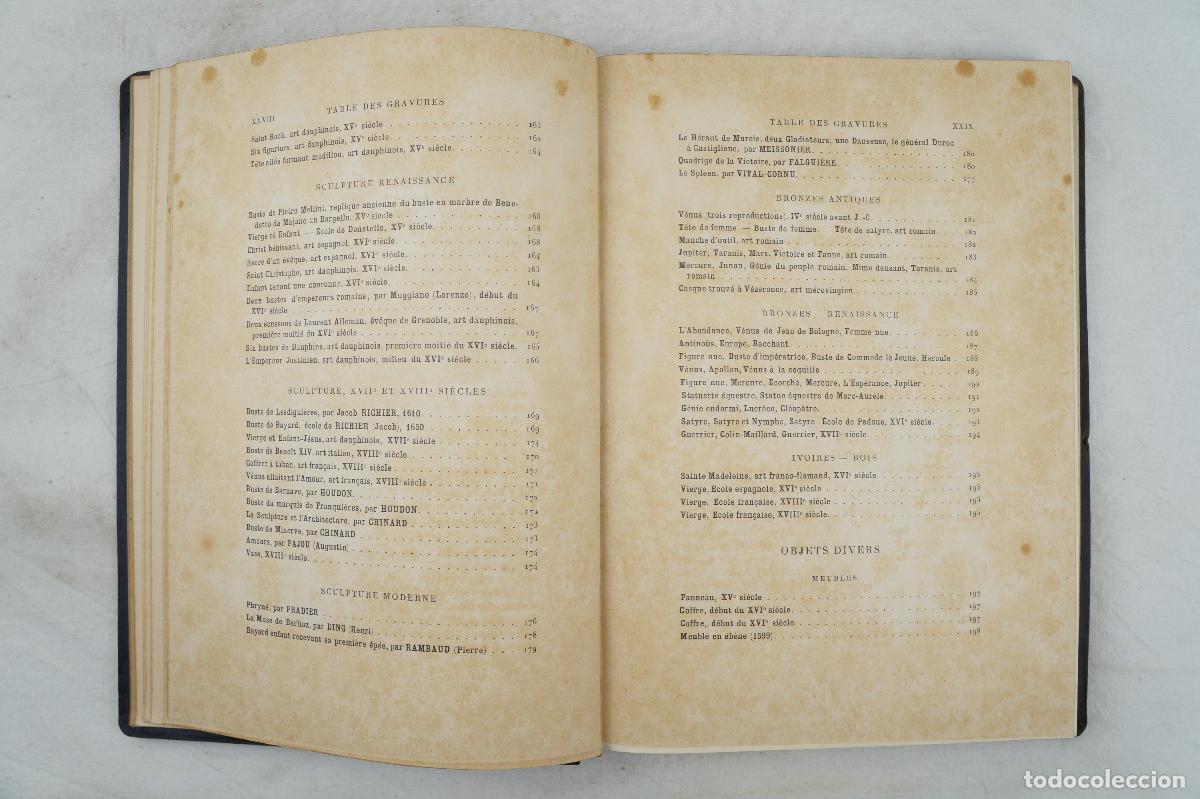 XXVIII TABLE DES GRAVURES
Saint Roch, art dauphinois, XVe siècle 163
Six figurines, art dauphinois, XVe siècle 162
Tête ailée formant modillon, art dauphinois, XVe siècle. 164
SCULPTURE RENAISSANCE
Buste de Pietro Mellini, réplique ancienne du buste en marbre de Bene-
detto da Majano au Bargello, XVe siècle 168
Vierge et Enfant. — Ecole de Donatello, XVe siècle. 168
Christ bénissant, art espagnol, XVIe siècle 168
Sacre d'un évêque, art espagnol, XVIe siècle. 164
Saint Christophe, art dauphinois, XVIe siècle. 163
Enfant tenant une couronne, XVIe siècle 164
Deux bustes d'empereurs romains, par Muggiano (Lorenzo), début du
XVIe siècle 167
Deux écussons de Laurent Alleman, évêque de Grenoble, art dauphinois,
première moitié du XVIe siècle 167
Six bustes de Dauphins, art dauphinois, première moitié du XVIe siècle. 165
L'Empereur Justinien, art dauphinois, milieu du XVIe siècle 166
SCULPTURE, XVIIe ET XVIIIe SIÈCLES
Buste de Lesdiguières, par Jacob RICHIER, 1610. 169
Buste de Bayard, école de RICHIER (Jacob), 1650 169
Vierge et Enfant-Jésus, art dauphinois, XVIIe siècle 174
Buste de Benoît XIV, art italien, XVIIIe siècle 170
Coffret à tabac, art français, XVIIIe siècle 172
Vénus allaitant l'Amour, art français, XVIIIe siècle 171
Buste de Barnave, par HOUDON. 172
Buste du marquis de Franquières, par HOUDON. 172
La Sculpture et l'Architecture, par CHINARD 173
Buste de Minerve, par CHINARD 173
Amours, par PAJOU (Augustin) 174
Vase, XVIIIe siècle. 174
SCULPTURE MODERNE
Phryné, par PRADIER 176
La Muse de Berlioz, par DING (Henri) 178
Bayard enfant recevant sa première épée, par RAMBAUD (Pierre) 179
TABLE DES GRAVURES XXIX
Le Héraut de Murcie, deux Gladiateurs, une Danseuse, le général Duroc
à Castiglione, par MEISSONIER. 180
Quadrige de la Victoire, par FALGUIÈRE. 180
Le Spleen, par VITAL-CORNU. 177
BRONZES ANTIQUES
Vénus (trois reproductions), IVe siècle avant J.-C. 181
Tête de femme — Buste de femme. Tête de satyre, art romain. 182
Manche d'outil, art romain 181
Jupiter, Taranis, Mars, Victoire et Faune, art romain 183
Mercure, Junon, Génie du peuple romain, Mime dansant, Taranis, art
romain 184
Casque trouvé à Vézeronce, art mérovingien 185
BRONZES — RENAISSANCE
L'Abondance, Vénus de Jean de Bologne, Femme nue. 186
Antinoüs, Europe, Bacchant 187
Figure nue, Buste d'impératrice, Buste de Commode le Jeune, Hercule 188
Vénus, Apollon, Vénus à la coquille 189
Figure nue, Mercure, Ecorché, Mercure, L'Espérance, Jupiter 190
Statuette équestre, Statue équestre de Marc-Aurèle. 191
Génie endormi, Lucrèce, Cléopâtre. 192
Satyre, Satyre et Nymphe, Satyre — Ecole de Padoue, XVIe siècle. 193
Guerrier, Colin-Maillard, Guerrier, XVIIe siècle 194
IVOIRES — BOIS
Sainte Madeleine, art franco-flamand, XVIe siècle 195
Vierge, Ecole espagnole, XVIe siècle 195
Vierge, Ecole française, XVIIIe siècle 195
Vierge, Ecole française, XVIIIe siècle. 195
OBJETS DIVERS
MEUBLES
Panneau, XVe siècle 197
Coffre, début du XVIe siècle. 197
Coffre, début du XVIe siècle 197
Meuble en ébène (1599) 198
todocoleccion